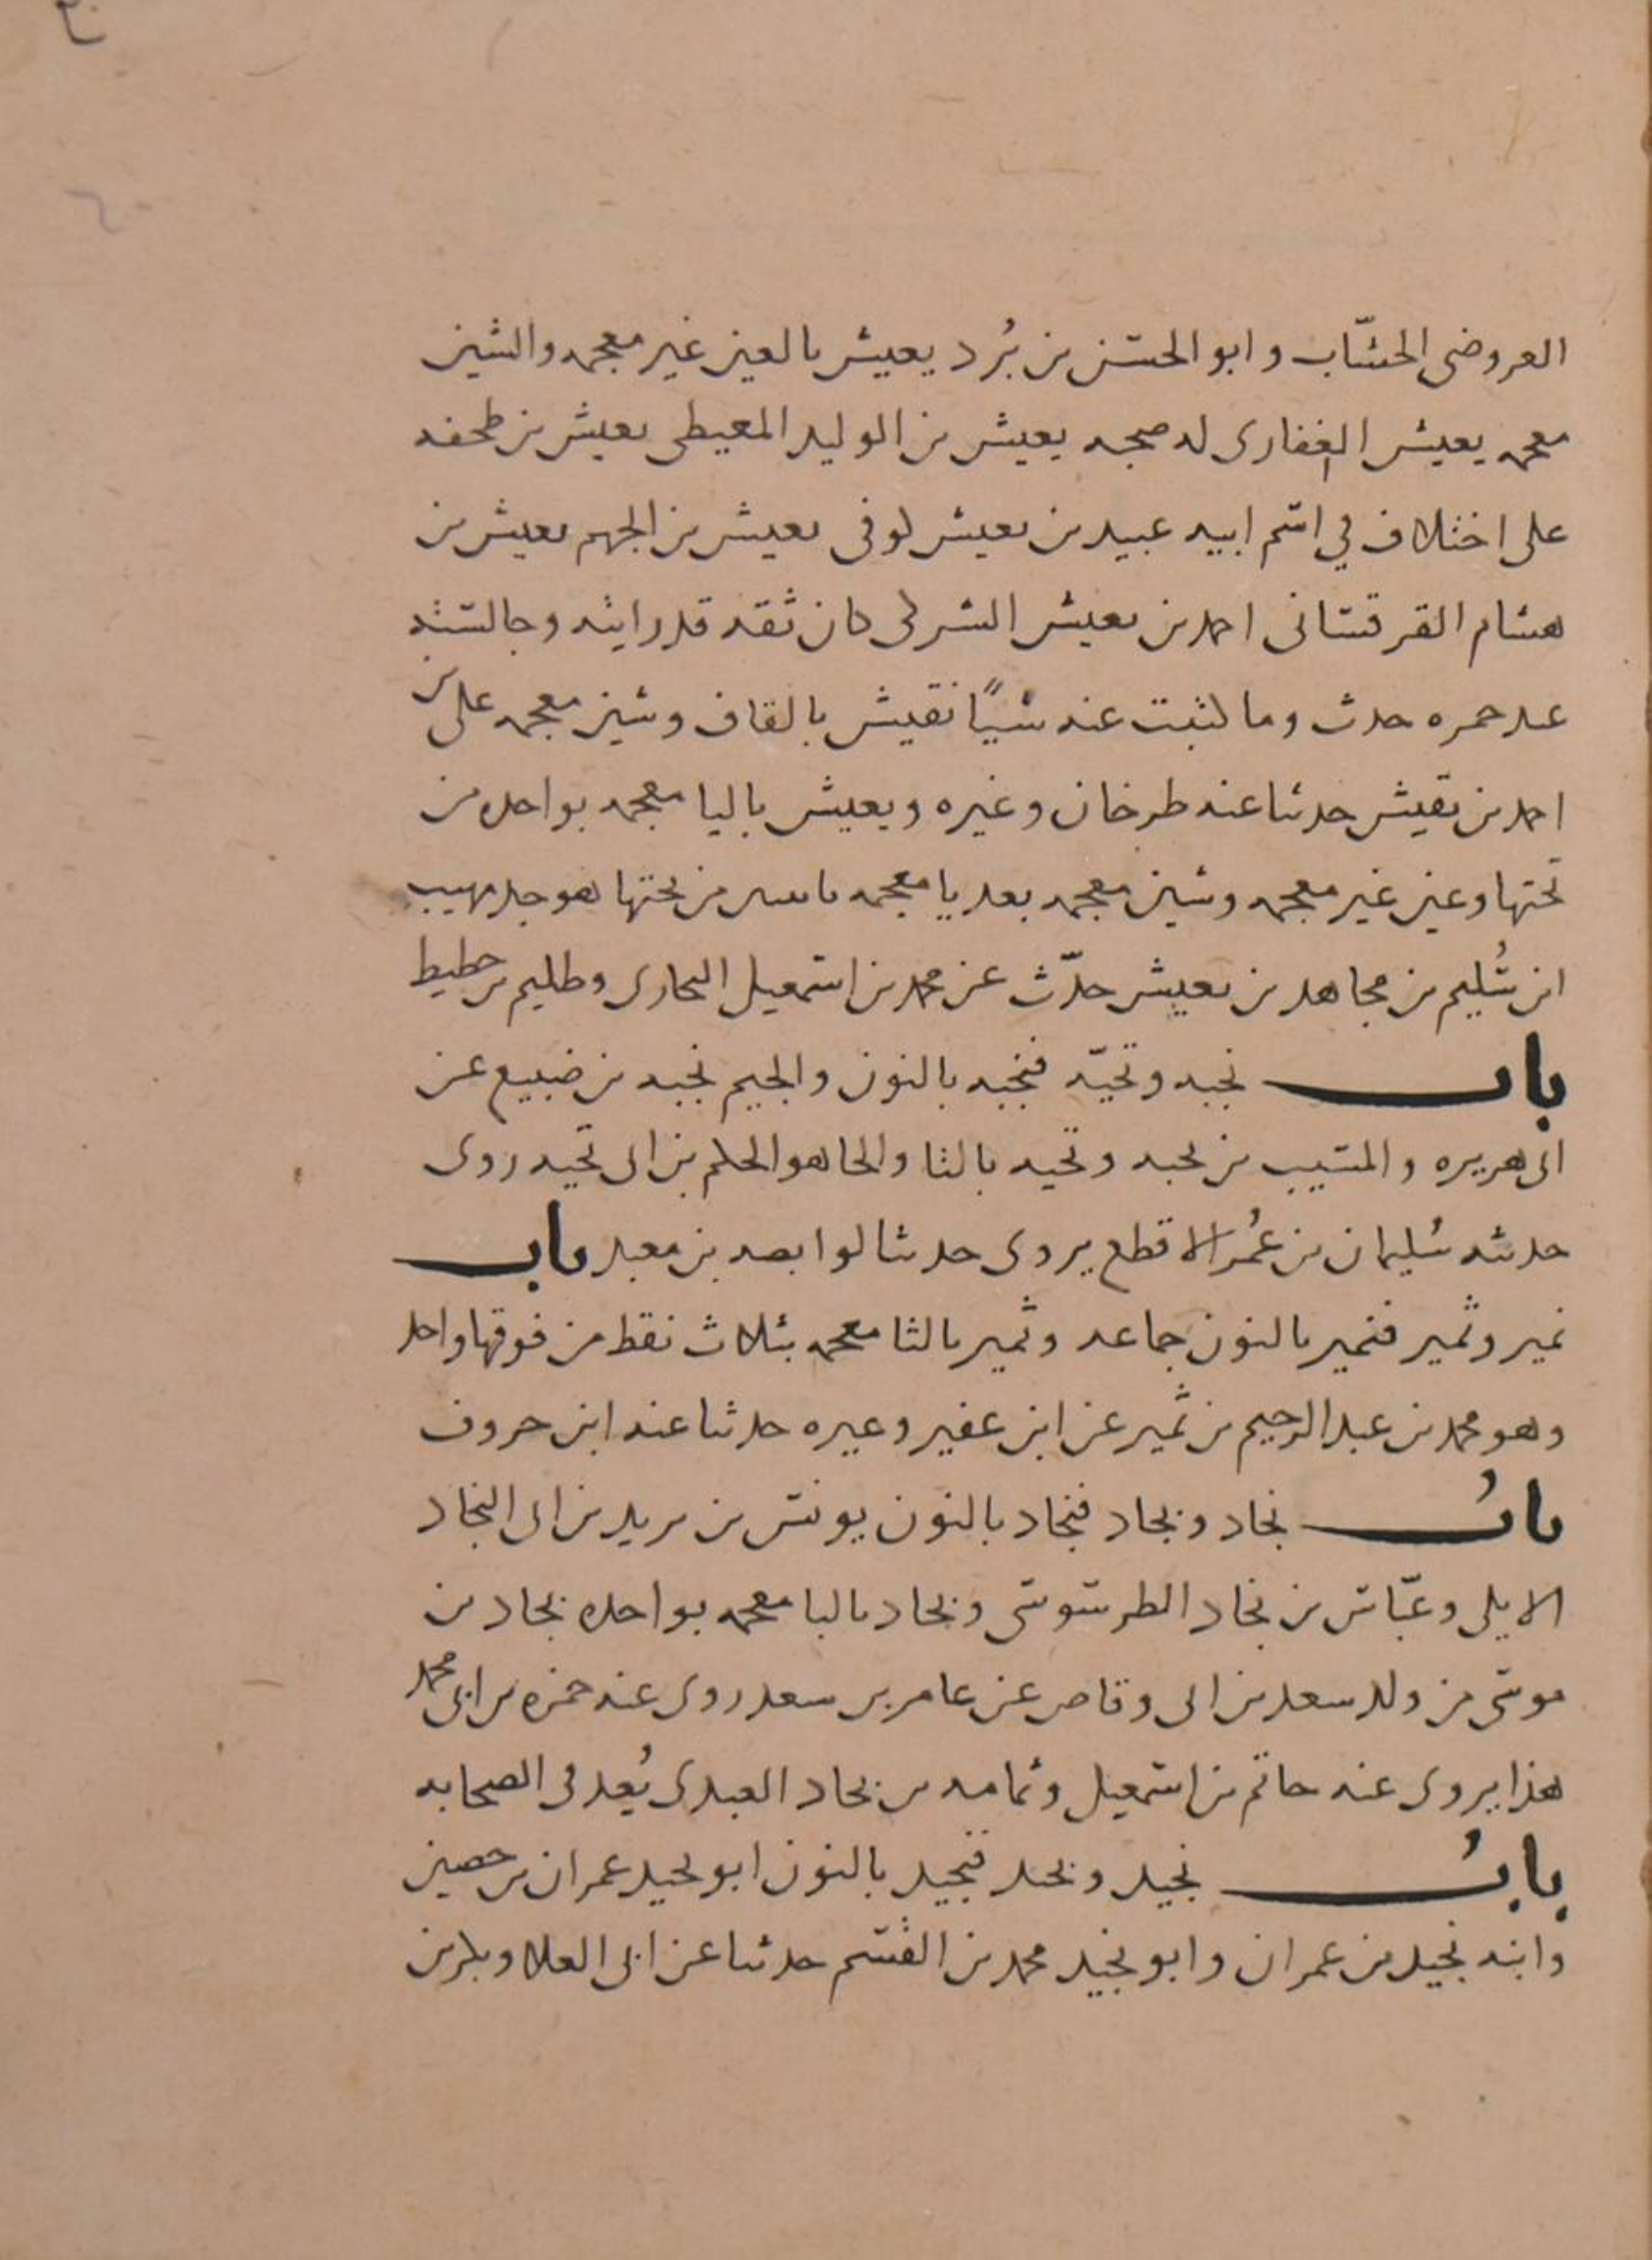 العروضى الخشّاب وابو الحسن بن بُرد يعيش بالعين غير معجمه والشين
معجمه يعيش الغفارى له صحبه يعيش بن الوليد المعيطى يعيش بن طخفه
على اختلاف في اسم ابيه عبيد بن يعيش كوفى يعيش بن الجهم يعيش بن
هشام القرقسانى احمد بن يعيش كان ثقه قد رايته وجالسته
عند حمزه حدث وما كتبت عنه شيًا نقيش بالقاف وشين معجمه على بن
احمد بن نقيش حدثنا عنه طرخان وغيره ويعيش باليا معجمه بواحده من
تحتها وعين غير معجمه وشين معجمه بعد يا معجمه باثنين من تحتها هو جد مهيب
ابن سُليم بن مجاهد بن يعيش حدّث عن محمد بن اسمعيل البخارى وظليم بن حطيط
باب نجبه وتحيّه فنجبه بالنون والجيم نجبه بن صبيغ عن
ابى هريره والمسيب بن نجبه وتحيه بالتا والحا هو الحكم بن ابى تحيه روى
حديثه سُليمان بن عُمر الاقطع يروى حديثا لوابصه بن معبد باب
نمير وثمير فنمير بالنون جماعه وثمير بالثا معجمه بثلاث نقط من فوقها واحد
وهو محمد بن عبد الرحيم بن ثمير عن ابن عفير وغيره حدثنا عنه ابن خروف
بابُ نجاد وبجاد فنجاد بالنون يونس بن يزيد بن ابى النجاد
الايلى وعبّاس بن نجاد الطرسوسى وبجاد بالبا معجمه بواحده بجاد بن
موسى من ولد سعد بن ابى وقاص عن عامر بن سعد روى عنه حمزه بن ابى محمد
هذا يروى عنه حاتم بن اسمعيل وثمامه بن بجاد العبدى يُعد فى الصحابه
بابُ نجيد وبجيد فنجيد بالنون ابو نجيد عمران بن حصين
وابنه نجيد بن عمران وابو نجيد محمد بن القسم حدثنا عن ابى العلا وبكر بن